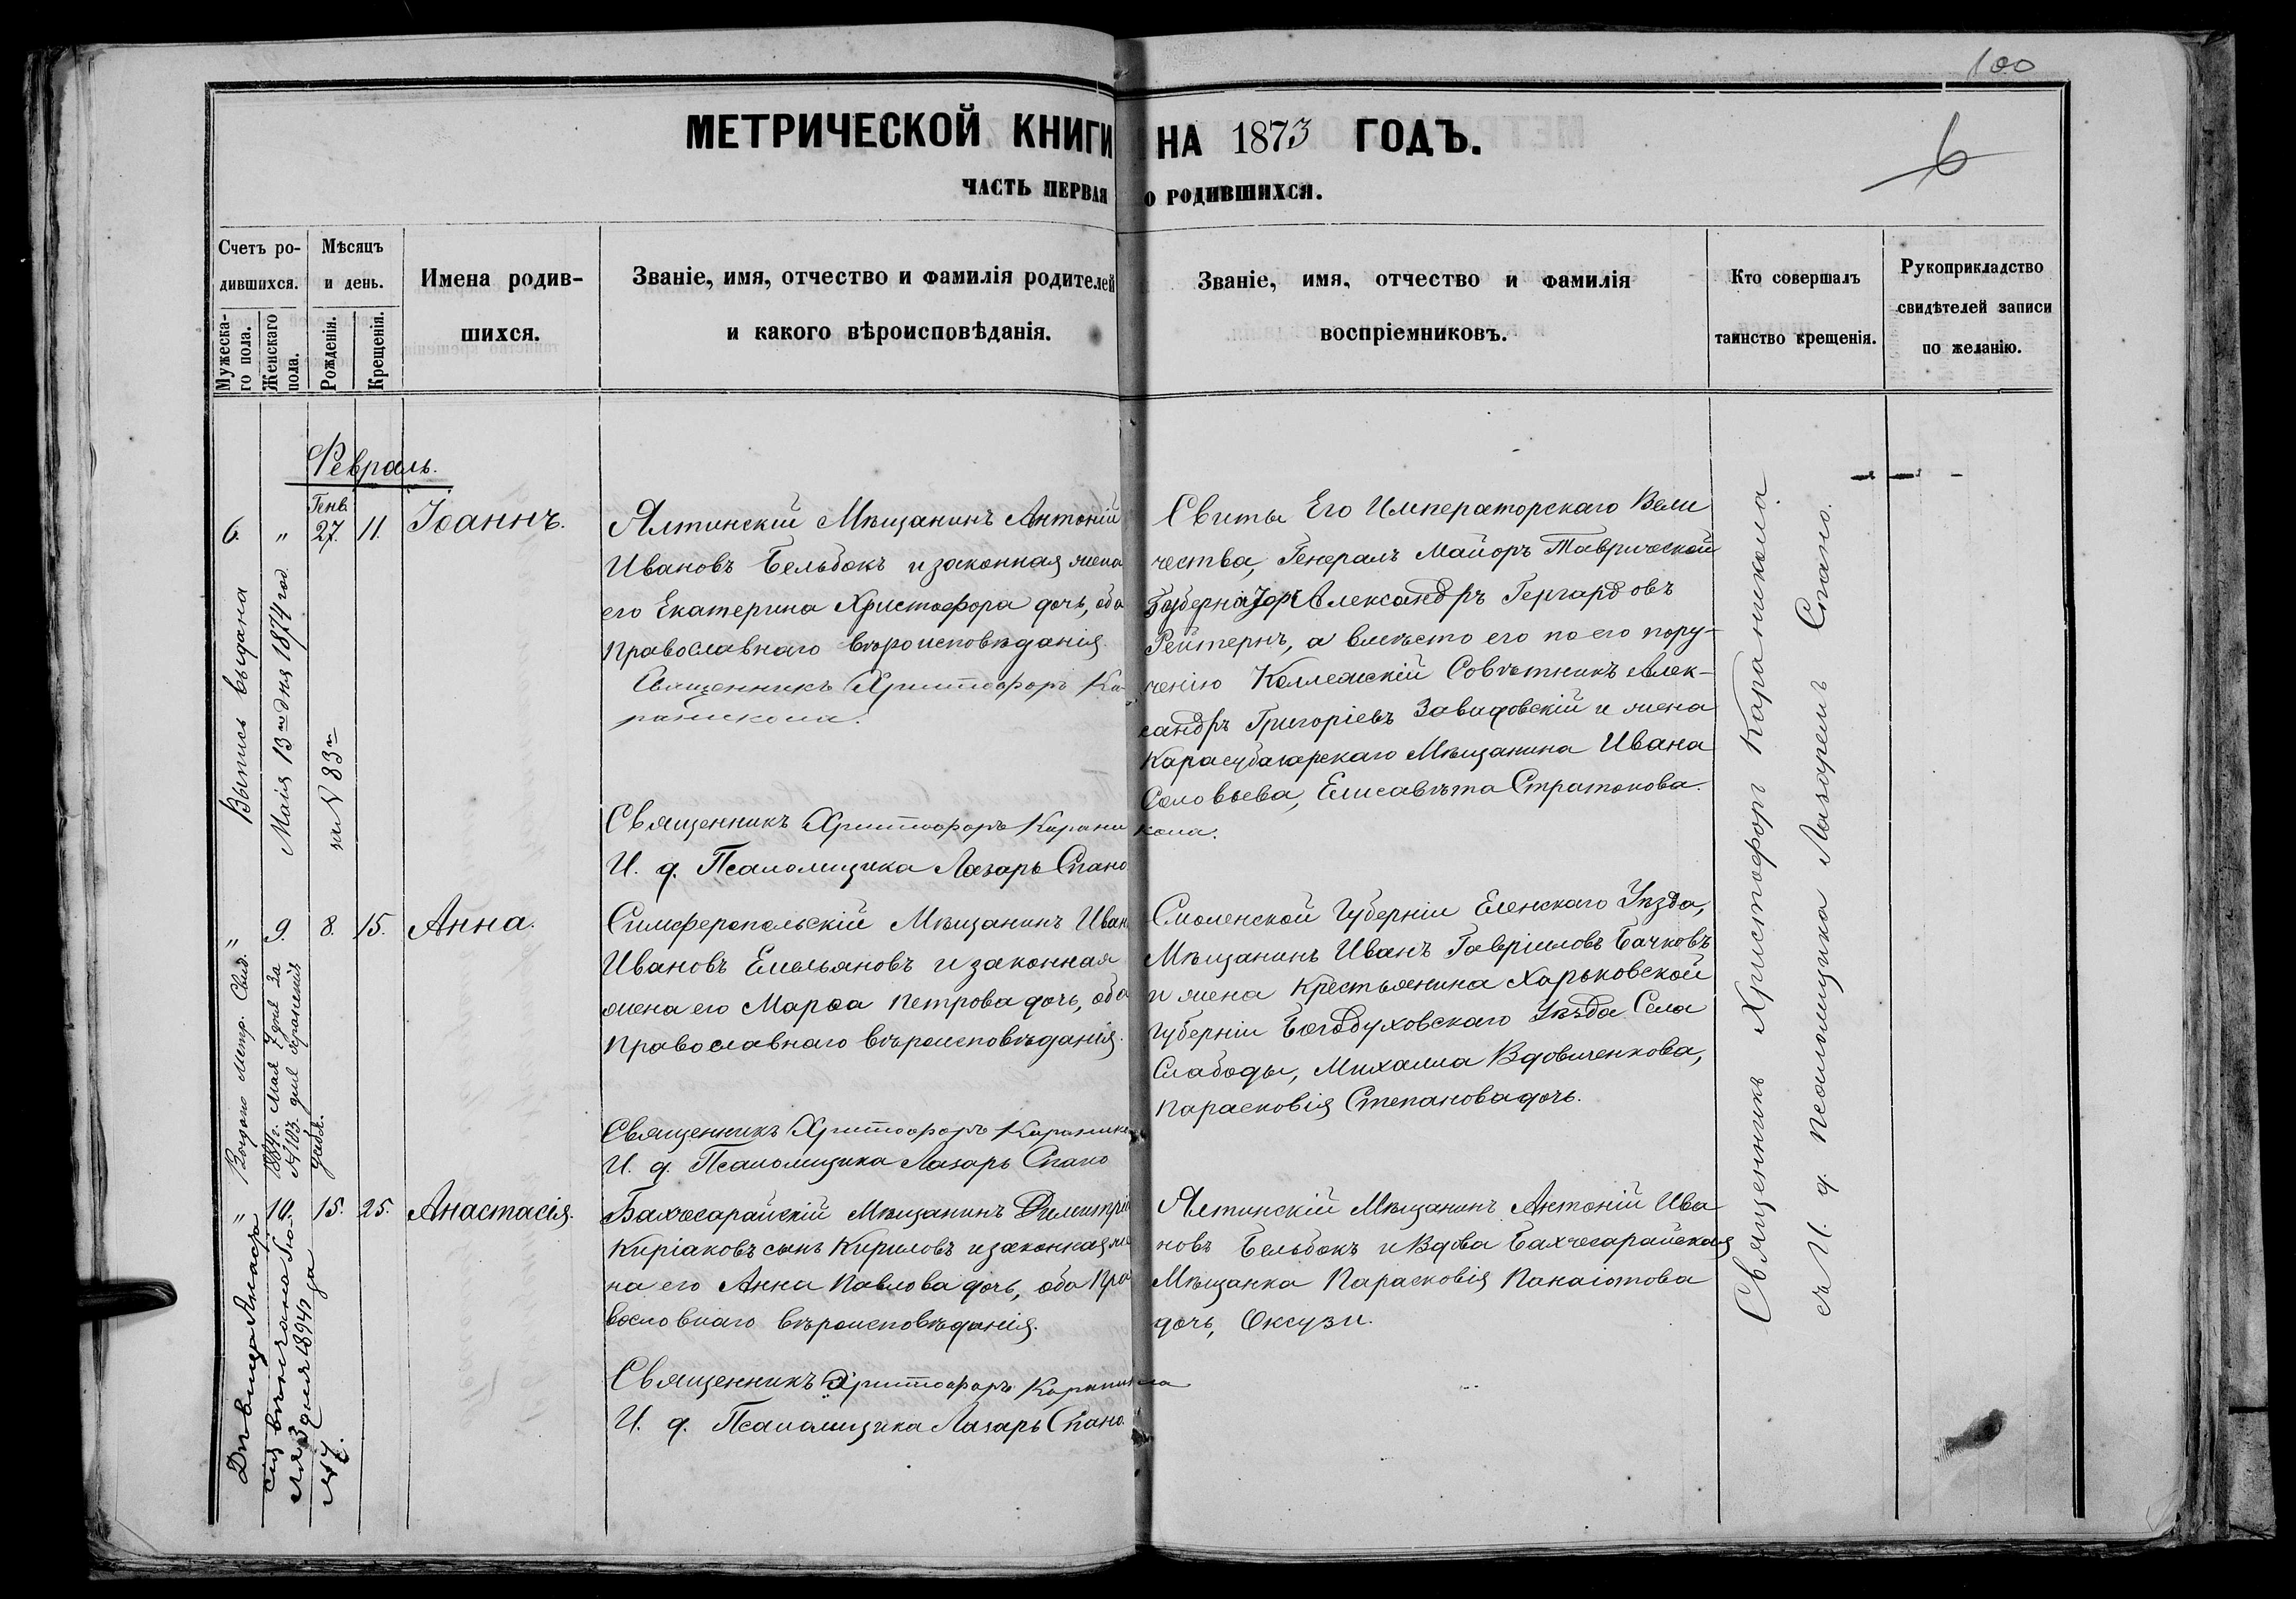 100
6
МЕТРИЧЕСКОЙ КНИГИ НА 1873 ГОДЪ.
ЧАСТЬ ПЕРВАЯ О РОДИВШИХСЯ.
Счетъ ро-
дившихся.
Мужеска-
го пола.
Женскаго
пола.
Мѣсяцъ
и день.
Рожденія.
Крещенія.
Имена родив-
шихся.
Званіе, имя, отчество и фамилія родителей
и какого вѣроисповѣданія.
Званіе, имя, отчество и фамилія
воспріемниковъ.
Кто совершалъ
таинство крещенія.
Рукоприкладство
свидѣтелей записи
по желанію.
Февраль.
6. " Генв. 27. 11. Іоаннъ.
Ялтинскій Мѣщанинъ Антоній
Ивановъ Бельбокъ и законная жена
его Екатерина Христофора дочь, оба
православнаго вѣроисповѣданія.
Священникъ Христофоръ Ка
раникола.
Священникъ Христофоръ Карани кола.
И. д. Псаломщика Лазарь Спано
Свиты Его Императорскаго Вели
чества, Генералъ Майоръ Таврической
Александръ Гергардовъ
Рейтернъ, а вмѣсто его по его пору-
ченію Коллежскій Совѣтникъ Алек-
сандръ Григоріевъ Завадовскій и жена
Карасубазарскаго Мѣщанина Ивана
Соловьева, Елисавѣта Стратонова.
Выпись выдана
Маія 13го дня 1874 год
за N 83м
" 9. 8. 15. Анна.
Симферопольскій Мѣщанинъ Иван
Ивановъ Емельяновъ и законная
жена его Марѳа Петрова дочь, оба
православнаго вѣроисповѣданія.
Священникъ Христофоръ Караникол
И. д. Псаломщика Лазарь Спано
Смоленской Губерніи Еленскаго Уѣзда,
Мѣщанинъ Иванъ Гавріиловъ Бачковъ
и жена крестьянина Харьковской
губерніи Богодуховскаго Уѣзда Села
Слабоды, Михаила Вдовиченкова,
Парасковія Степанова дочь.
Выдано Метр. Свид.
Мая 7 дня За
№ 103.
" 10. 15. 25. Анастасія.
Бахчесарайскій Мѣщанинъ Димитрій
Киріаковъ сынъ Кириловъ и законная же
на его Анна Павлова дочь, оба пра
вославнаго вѣроисповѣданія.
Священникъ Христофоръ Караникола
И. д. Псаломщика Лазарь Спано.
Ялтинскій Мѣщанинъ Антоній Ива
новъ Бельбокъ и Вдова Бахчесарайская
Мѣщанка Парасковія Панаіотова
дочь, Оксузи.
Дѣвица Анаста
сія вѣнчана Ію
ля 3 дня 1894 г за
№ 7.
Священникъ Христофоръ Караникола
съ И. д. псаломщика Лазаремъ Спано.